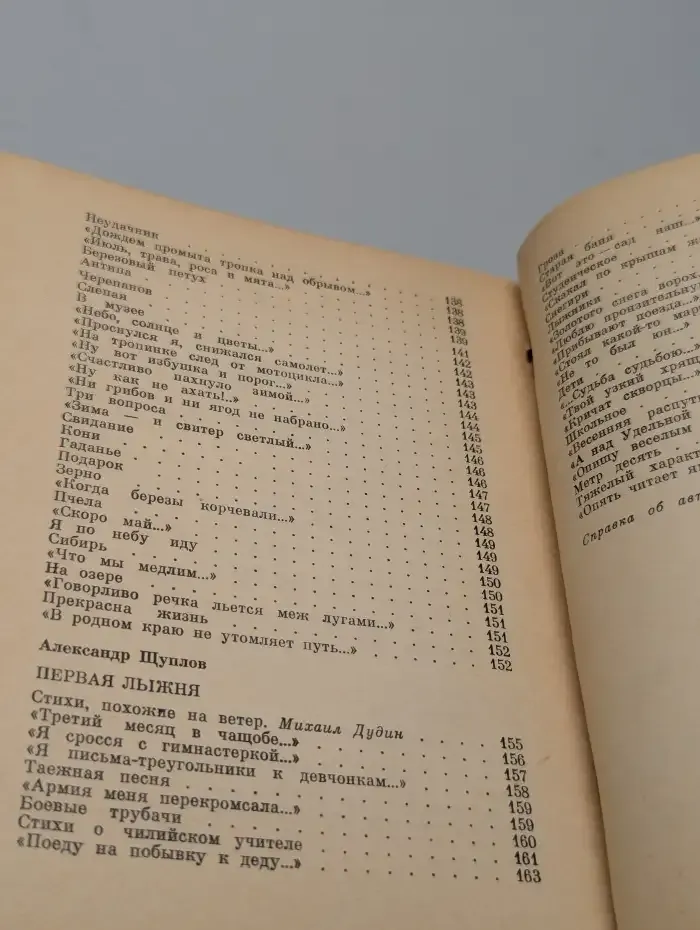 Неудачник . . . 138
«Дождем промыта тропка над обрывом...» 138
«Июль, трава, роса и мята...» . . . 138
Березовый петух . . . 139
Антипа . . . 139
Черепанов . . . 141
Слепая . . . 142
В музее . . . 142
«Небо, солнце и цветы...» . . . 143
«Проснулся я, снижался самолет...» . . . 143
«На тропинке след от мотоцикла...» . . . 143
«Ну вот избушка и порог...» . . . 144
«Счастливо пахнуло зимой...» . . . 144
«Ну как не ахать!..» . . . 145
«Ни грибов и ни ягод не набрано...» . . . 145
Три вопроса . . . 146
«Зима — и свитер светлый...» . . . 146
Свидание . . . 146
Кони . . . 147
Гаданье . . . 147
Подарок . . . 148
Зерно . . . 148
«Когда березы корчевали...» . . . 149
Пчела . . . 149
«Скоро май...» . . . 149
Я по небу иду . . . 150
Сибирь . . . 150
«Что мы медлим...» . . . 151
На озере . . . 151
«Говорливо речка льется меж лугами...» . . . 151
Прекрасна жизнь . . . 152
«В родном краю не утомляет путь...» . . . 152
Александр Щуплов
ПЕРВАЯ ЛЫЖНЯ
Стихи, похожие на ветер. Михаил Дудин . . . 155
«Третий месяц в чащобе...» . . . 156
«Я сросся с гимнастеркой...» . . . 157
«Я письма-треугольники к девчонкам...» . . . 158
Таежная песня . . . 159
«Армия меня перекромсала...» . . . 159
Боевые трубачи . . . 160
Стихи о чилийском учителе . . . 161
«Поеду на побывку к деду...» . . . 163
Гроза
Старая баня
«Вот это — сад наш...»
Студенческое
«Скакал по крышам
Снегири
Лыжники
«Золотого снега ворох
«Люблю пронзительную
«Прибывают поезда...»
«Стоял какой-то мар
«Не то был юн...»
Дети
«...Судьба судьбою...»
«Твой узкий хрящ
«Кричат скворцы...»
Школьное
«Весенняя распут
«А над Удельной
«Опишу веселым
Метр десять
Тяжелый характ
«Опять читает
Справка об авт